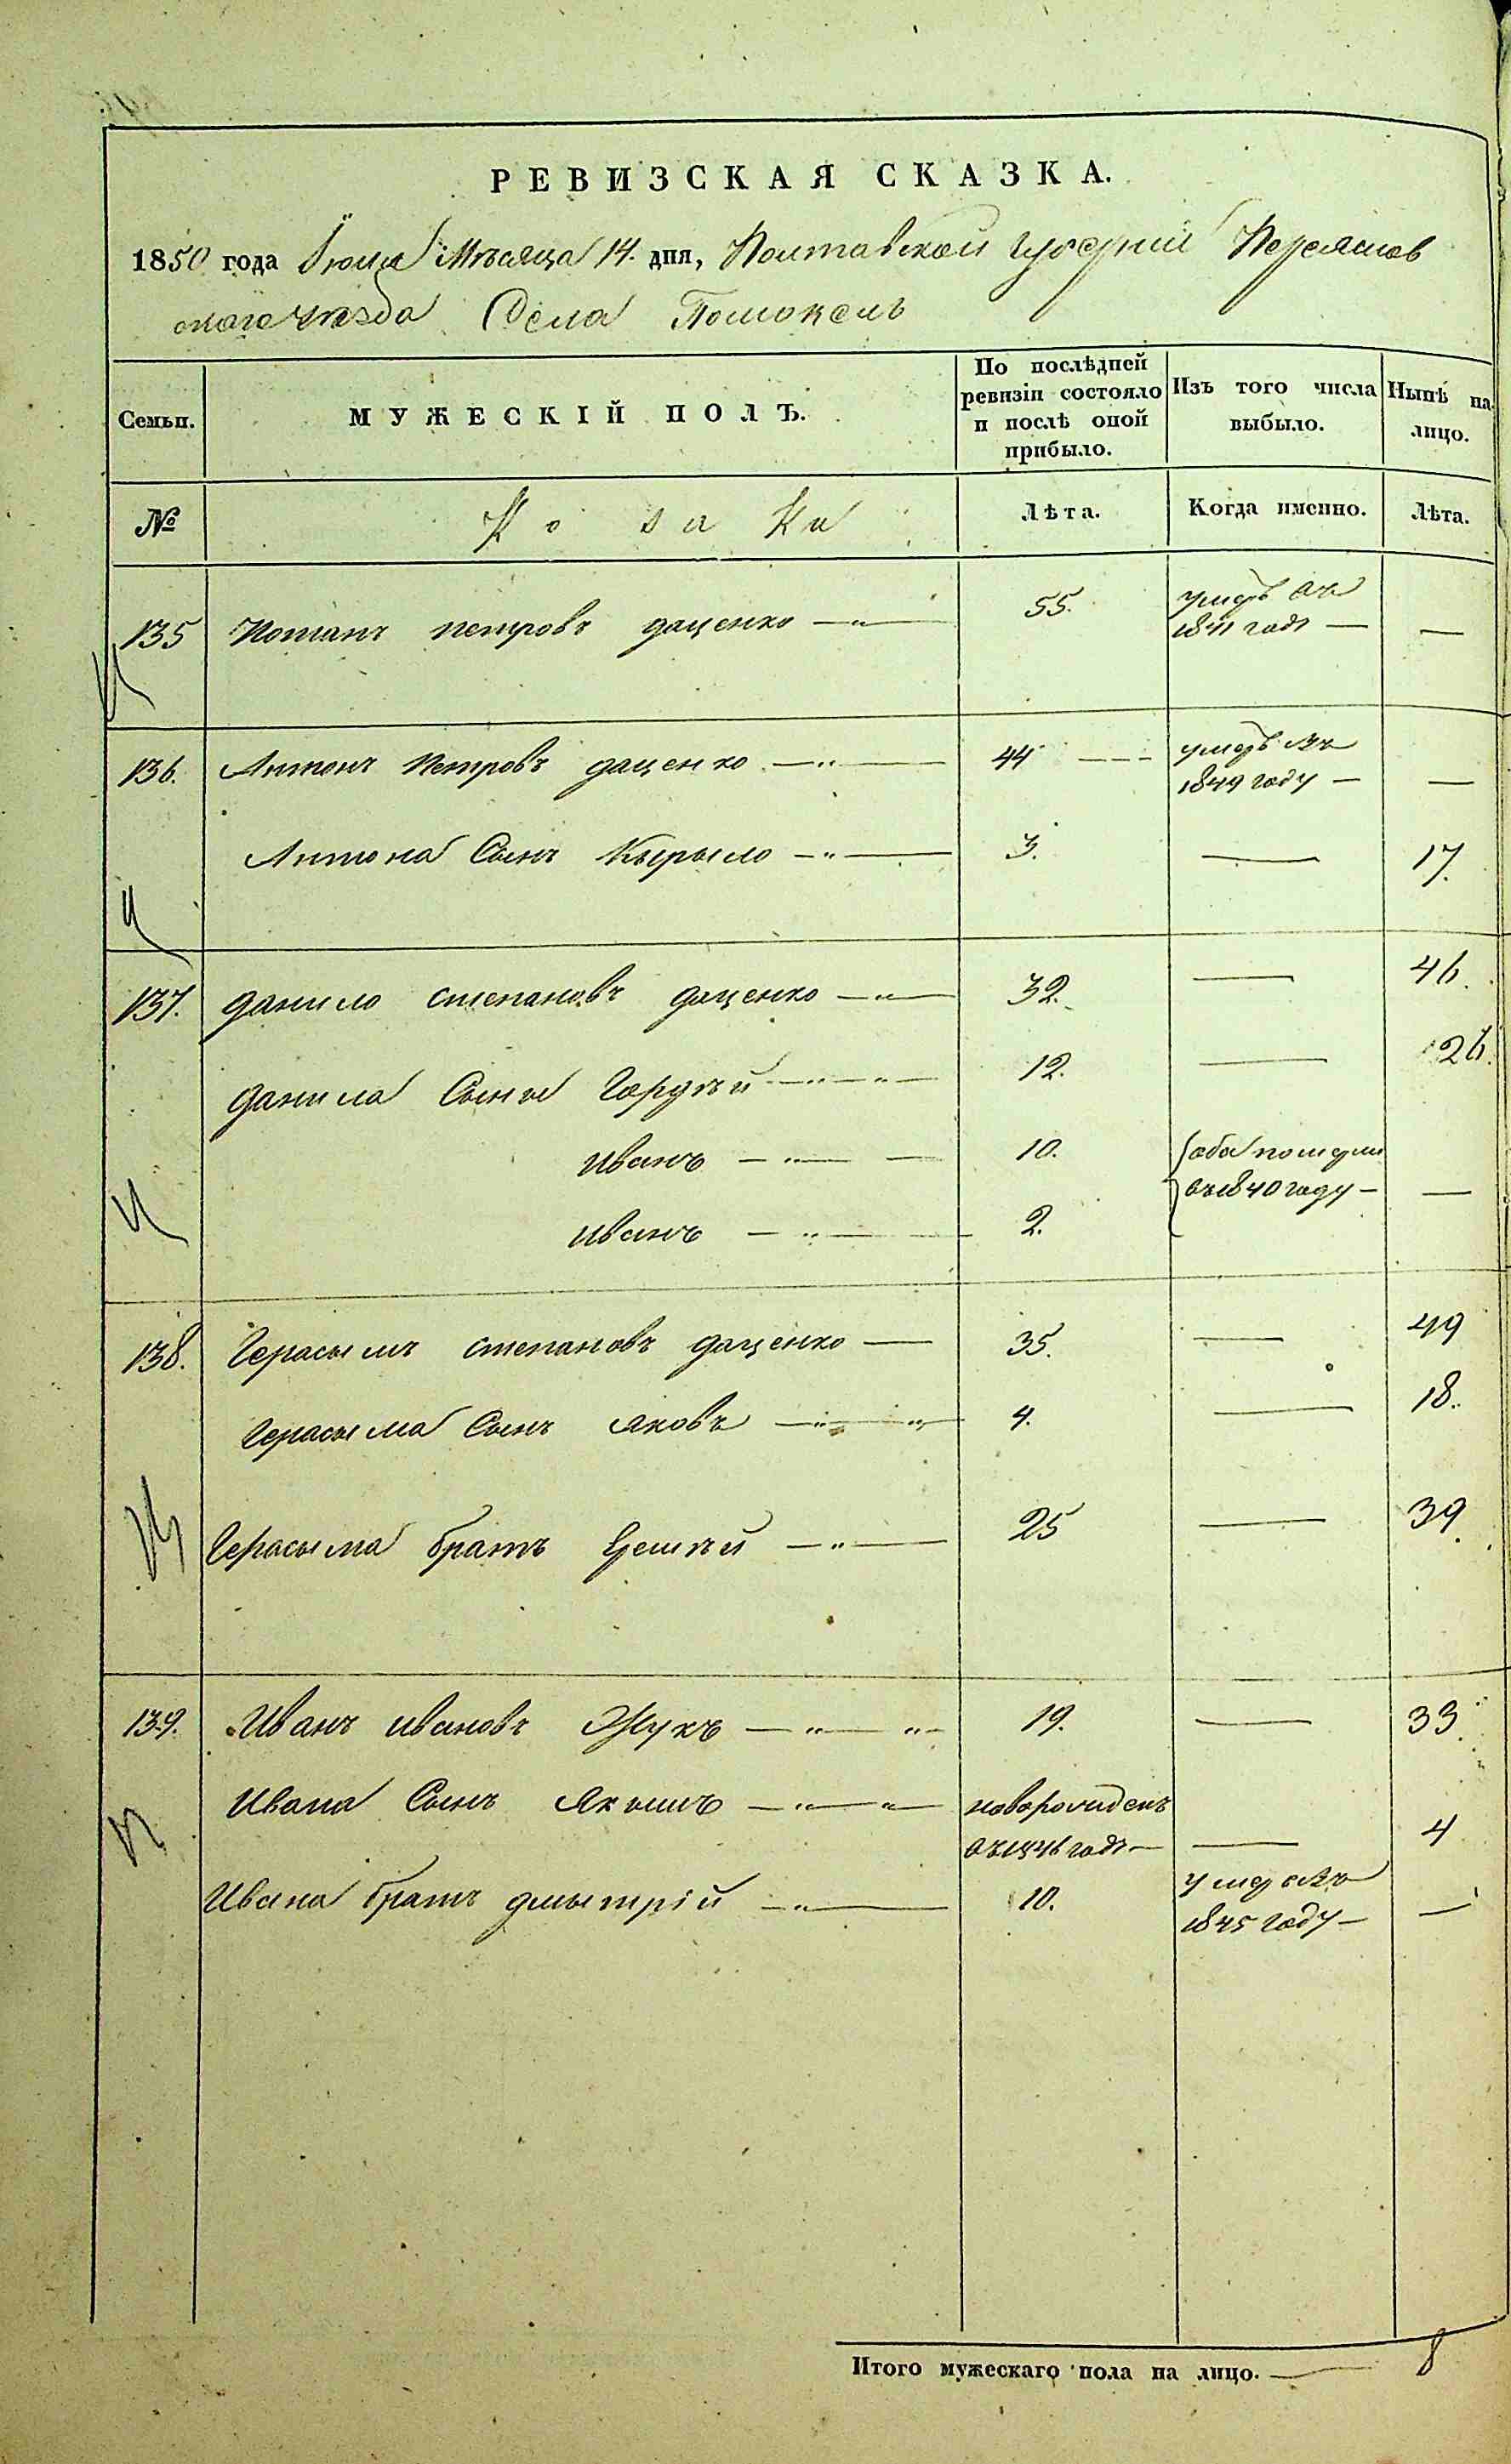 РЕВИЗСКАЯ СКАЗКА.
1850 года Июня Мѣсяца 14. дня, Полтавской губерніи Переяслов
скаго уѣзда Села Помокель
Семьи.
МУЖЕСКІЙ ПОЛЪ.
По послѣдней
ревизіи состояло
и послѣ оной
прибыло.
Изъ того числа
выбыло.
Нынѣ на
лицо.
№
Козаки
Лѣта.
Когда именно.
Лѣта.
135 Потапъ петровъ даценко 55. умеръ въ
1841 годѣ —
136. Антонъ Петровъ даценко 44 умеръ въ
1849 году —
Антона Сынъ Кырыло 3. — 17.
137. данило степановъ даценко 32. — 46.
данила Сыны Гордѣй 12. — 26.
иванъ 10. оба померли
въ 1840 году —
иванъ 2.
138. Герасымъ степановъ даценко 35. — 49
Герасыма Сынъ яковъ 4. — 18.
Герасыма братъ 25 — 39.
139. Иванъ ивановъ Жукъ 19. — 33.
Ивана Сынъ Якымъ новорожденъ
въ 1846 годѣ — 4
Ивана братъ дмытрій 10. умеръ въ
1845 году —
Итого мужескаго пола на лицо. — 8